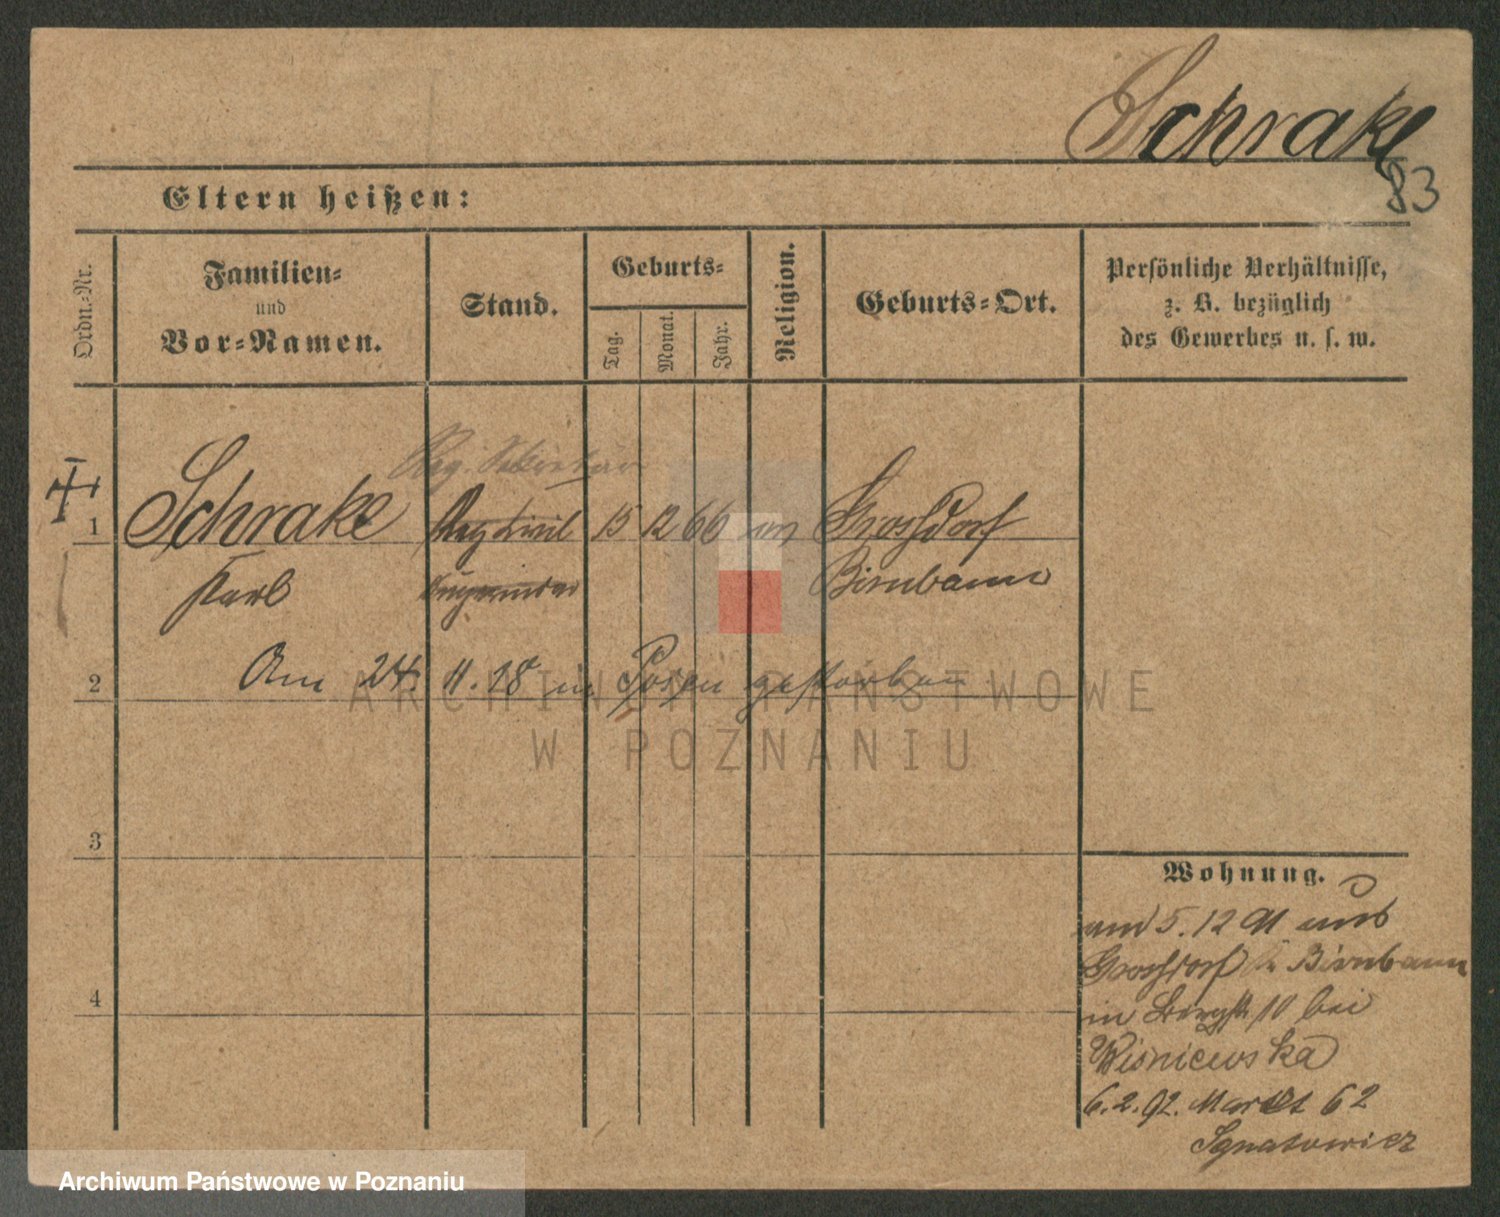 Schrake
83
Eltern heißen:
Ordn.-Nr.
Familien-
und
Vor-Namen.
Stand.
Geburts-
Tag.
Monat.
Jahr.
Religion.
Geburts-Ort.
Persönliche Verhältnisse,
z. B. bezüglich
des Gewerbes u. s. w.
Reg. Sekretär
1 Schrake 15 12 66 Groshdorf
Karl Birnbaum
2 Am 24. 11. 18 in Posen gestorben
ARCHIWUM PAŃSTWOWE
W POZNANIU
3
4
Wohnung.
am 5. 12 91 aus
Groshdorf Birnbaum
in Bergstr 10 bei
Wisniewska
6. 2. 92. Markt 62
Ignatowicz
Archiwum Państwowe w Poznaniu